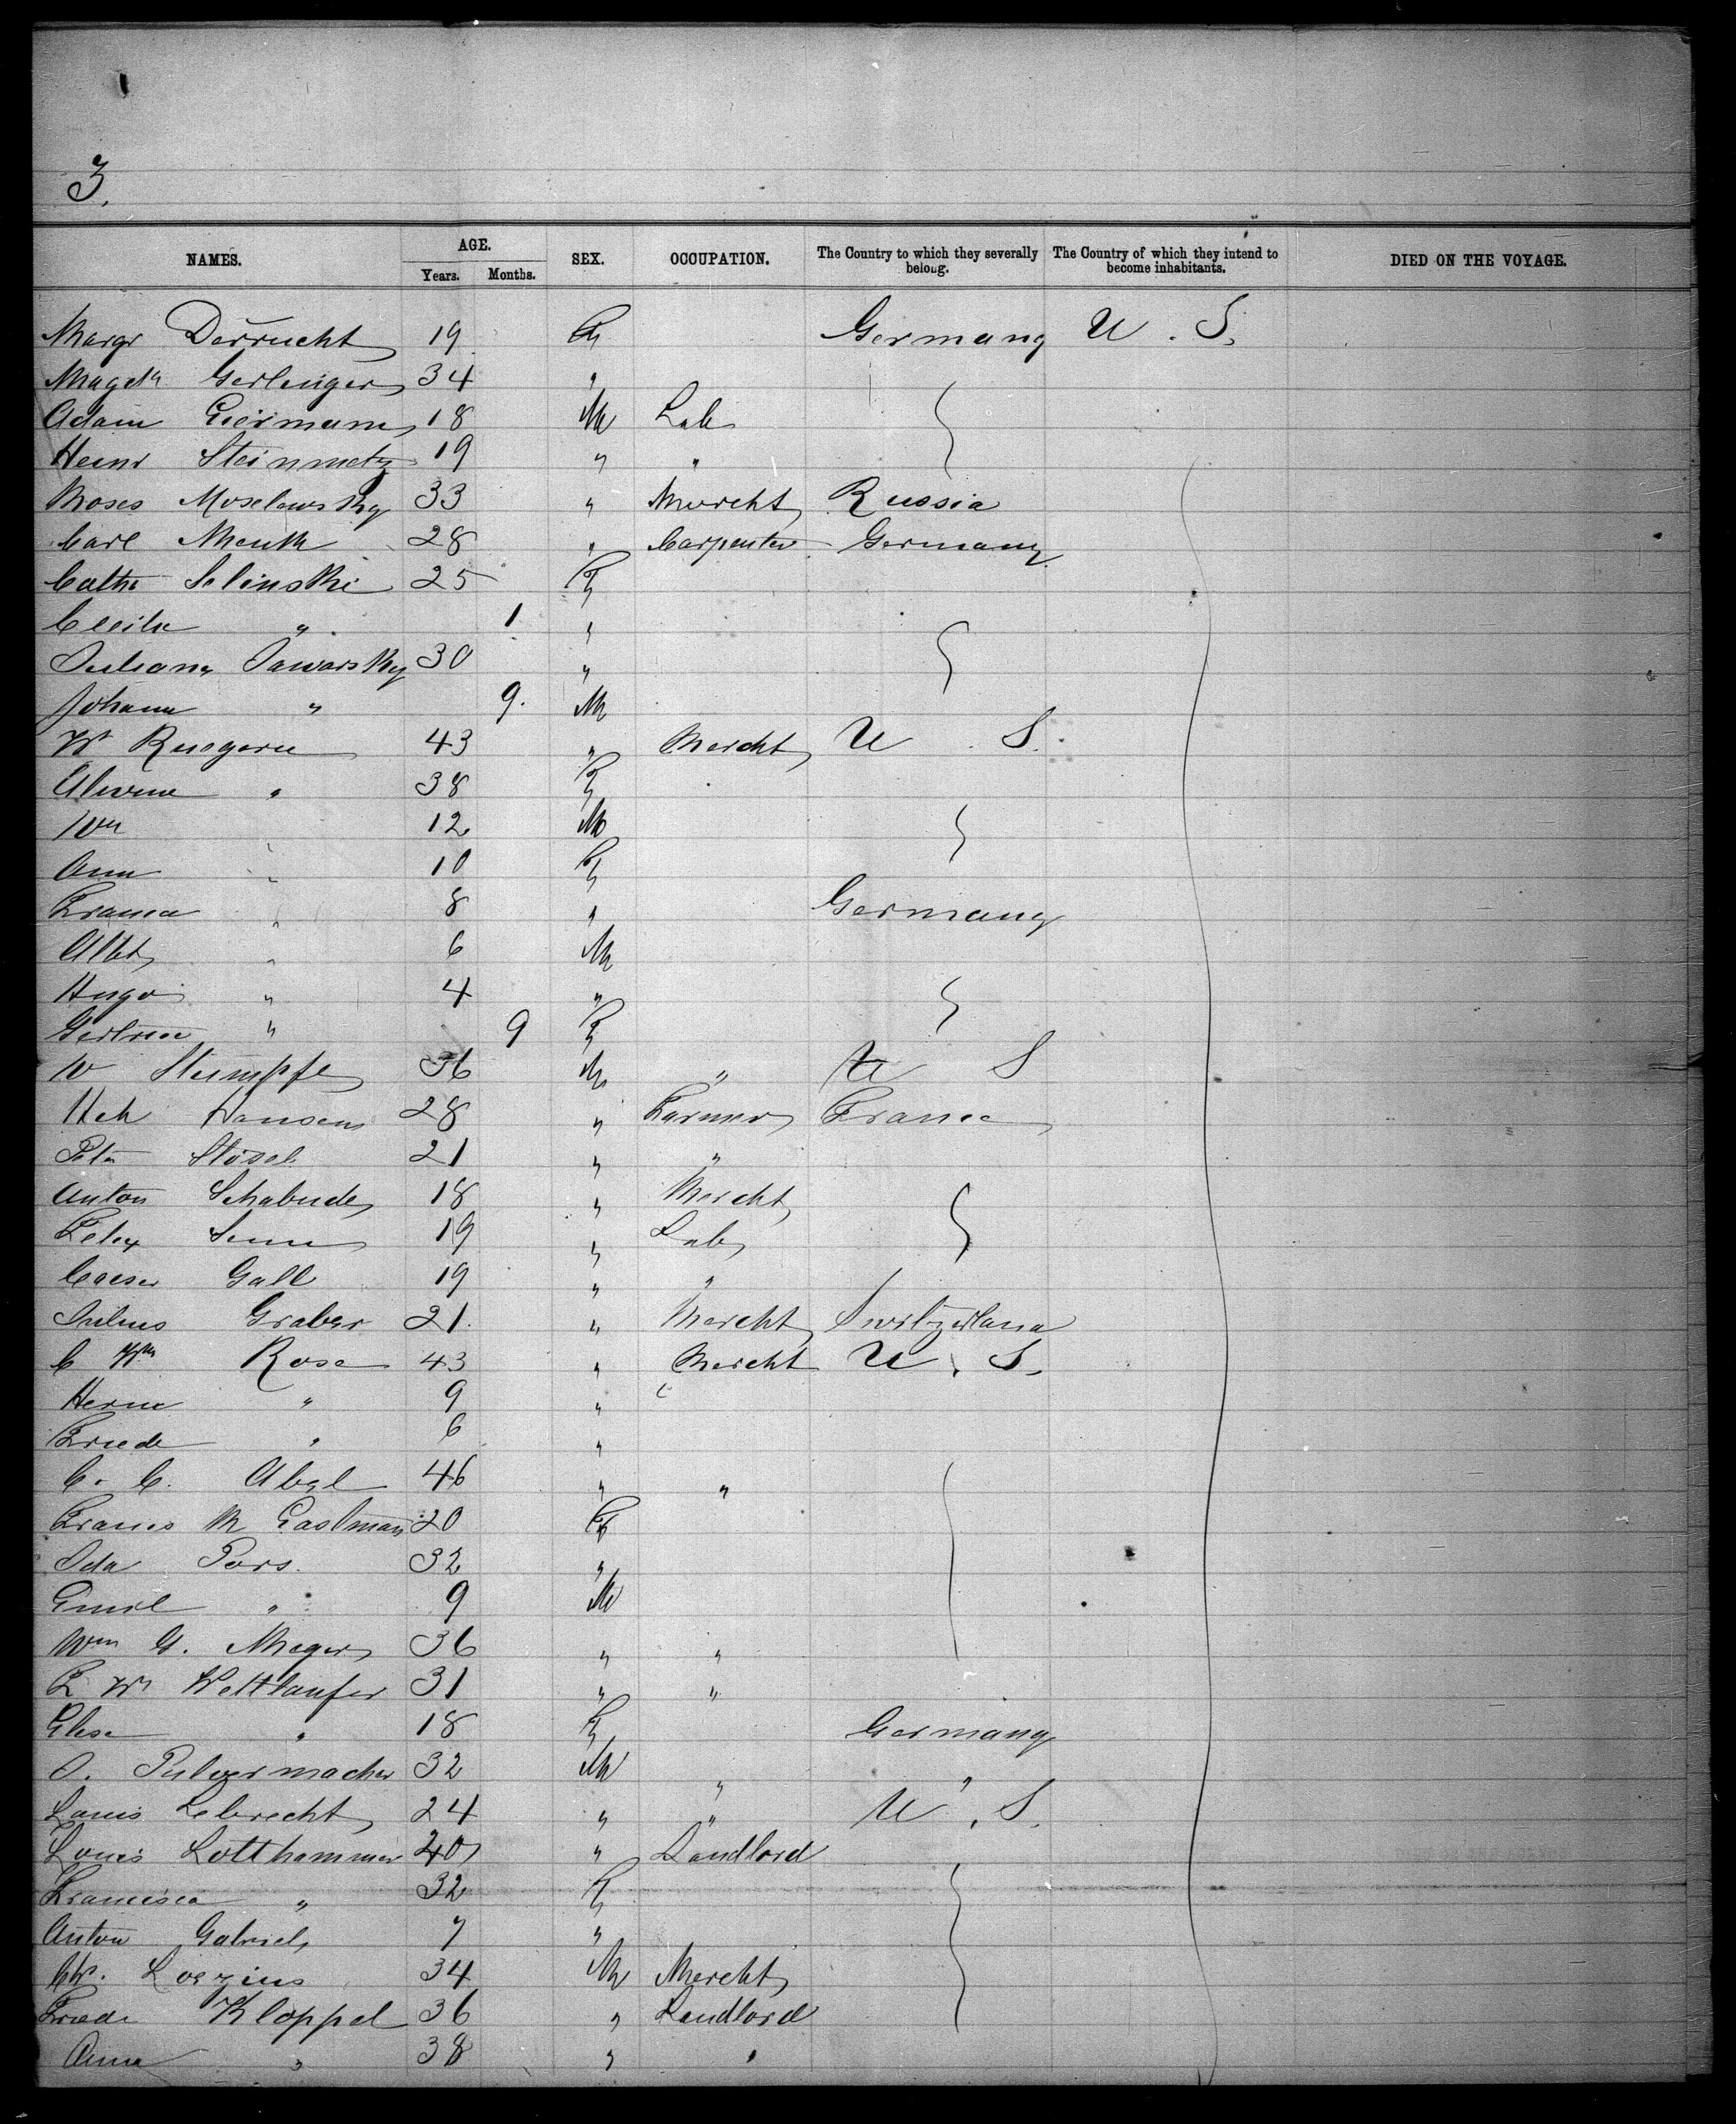 3.
NAMES. AGE. Years. Months. SEX. OCCUPATION. The Country to which they severally belong. The Country of which they intend to become inhabitants. DIED ON THE VOYAGE.
Margr Derrucht 19 F Germany U. S.
Magda Gerlinger 34 "
Adam Giermann 18 M Lab
Heinr Steinmetz 19 " "
Moses Moselowsky 33 " Mercht Russia
Carl Menth 28 " Carpenter Germany
Cathe Selinski 25 F
Cecile " 1 "
Juliana Jawarsky 30 "
Johann " 9. M
43 " Mercht U. S.
Alwine " 38 F
Wm 12 M
Ann " 10 F
Franca " 8 " Germany
Albt " 6 M
Hugo " 4 "
" 9 F
W Stumpfe 36 M " U S
Hch Hansen 28 " Farmer France
Peter Stosel 21 " "
Anton Schabude 18 " Mercht
Felix Senn 19 " Lab
Caesar Gall 19 " "
Julius Graber 21. " Mercht Switzerland
C Wm Rose 43 " Mercht U. S.
Herm " 9 "
Friede " 6 "
C. C. Abel 46 " "
Francis M Eastman 20 F
Ida Pors. 32 "
Emil " 9 M
Wm G. Meyer 36 " "
F Wm Wettlaufer 31 " "
Elise " 18 F Germany
O. Pulvermacher 32 M " "
Louis Lebrecht 24 " " U. S.
Louis Lotthammer 40 " Landlord
Francisca " 32 F
Anton Gabriel 7 "
Loezius 34 M Mercht
Friedr Kloppel 36 " Landlord
Anna " 38 " "